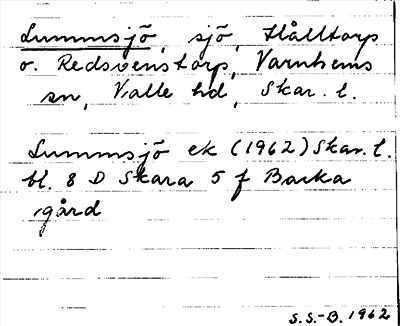 Lummsjö, sjö, Hålltorp
o. Redsvenstorp, Varnhems
sn, Valle hd, Skar. l.
Lummsjö ek (1962) Skar. l.
bl. 8 D Skara 5 f Backa
gård
S.S.-B. 1962